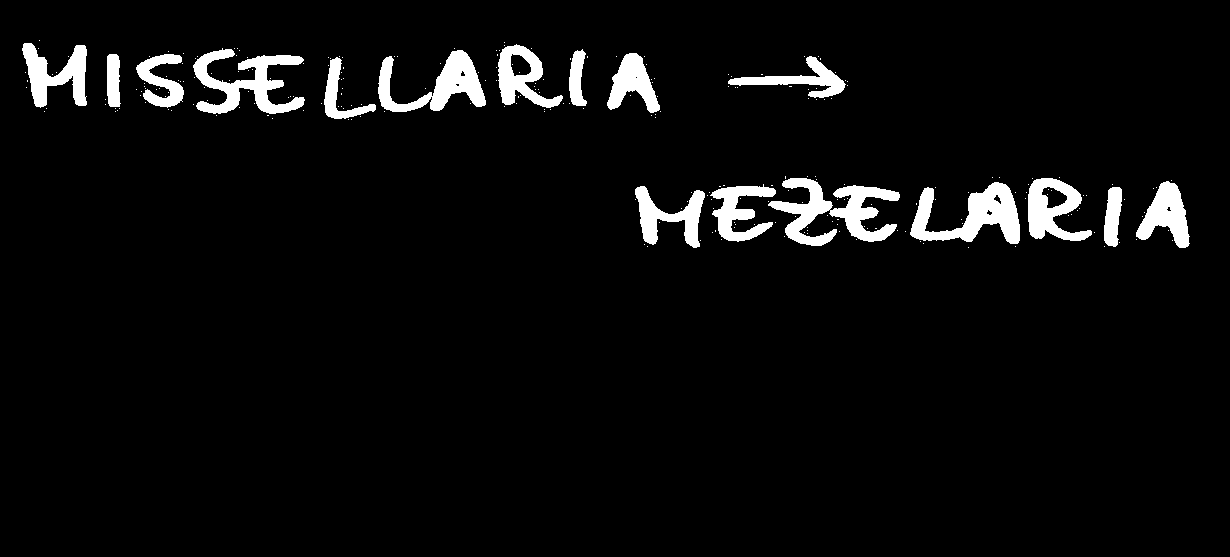 MISSELLARIA →
MEZELARIA